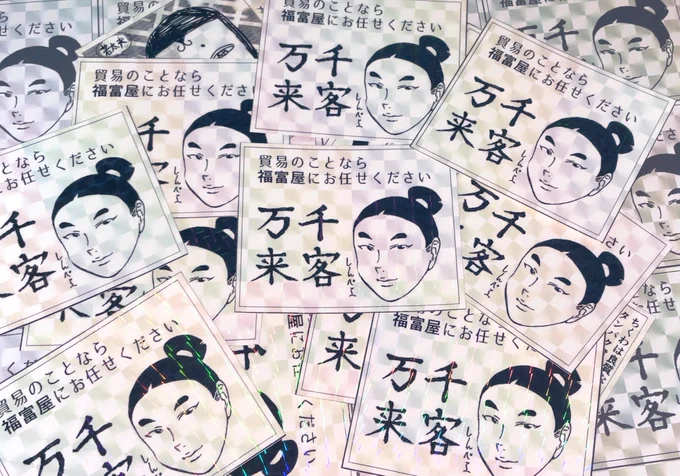 貿易のことなら
福富屋にお任せください
千客
万来
しんべヱ
貿易のことなら
福富屋にお任せください
千客
万来
しんべヱ
貿易のことなら
福富屋にお任せ
千
となら
お任せください
千客
しんべヱ
貿易のことなら
福富屋にお任せください
千客
万来
しんべヱ
さい
千客
万来
しんべヱ
貿易のことなら
福富屋にお任せください
千客
万
福富屋にお任せください
千客
万来
しんべヱ
来
ください
ちくわは良質な
タンパク
千客